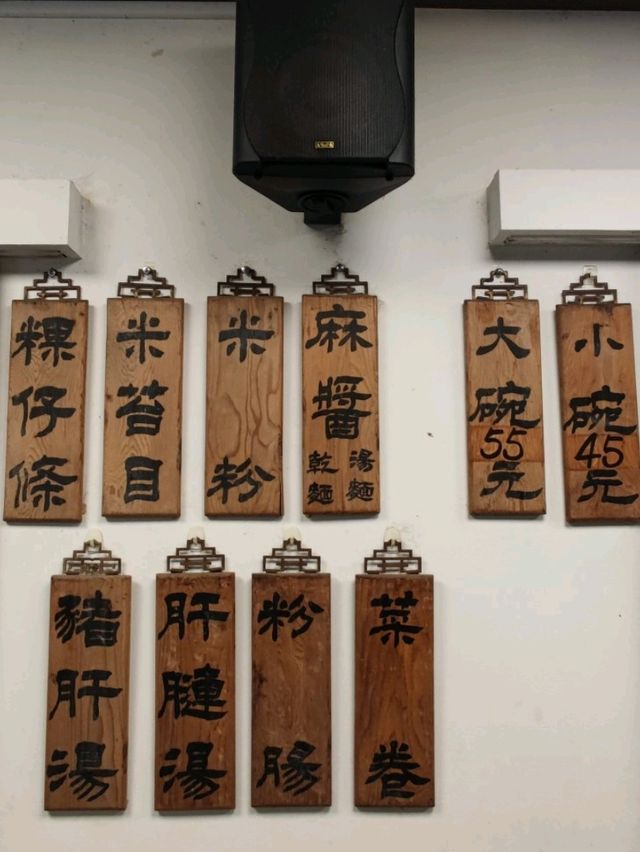 小碗45元
大碗55元
麻醬
湯麵
乾麵
米粉
米苔目
粿仔條
菜卷
粉腸
肝 湯
豬肝湯